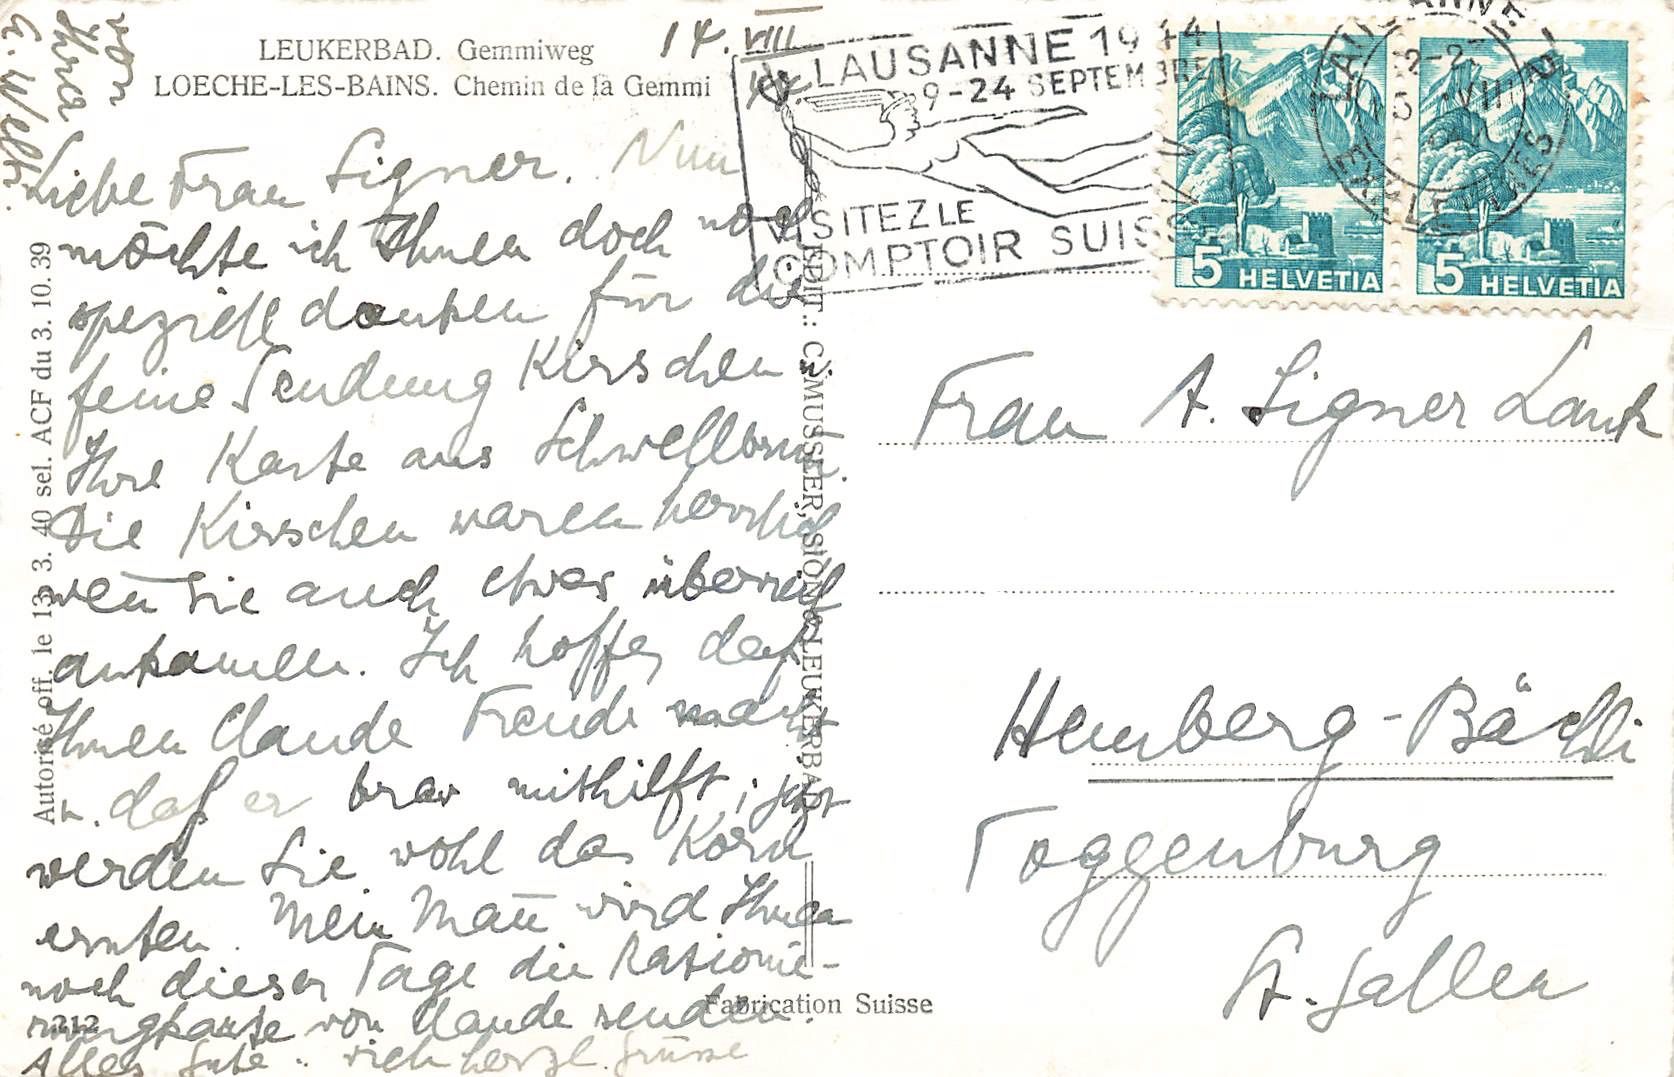 LEUKERBAD. Gemmiweg
LOECHE-LES-BAINS. Chemin de la Gemmi
14. VIII
Liebe Frau Signer. Nun
möchte ich Ihnen doch noch
speziell danken für die
feine Sendung Kirschen
Ihre Karte aus Schwellbrunn.
Die Kirschen waren herrlich
weñ sie auch etwas überreif
ankamen. Ich hoffe, daß
Ihnen Claude Freude macht
u. daß er brav mithilft, jetzt
werden Sie wohl das Korn
ernten. Mein Mañ wird Ihnen
noch dieser Tage die Rationie-
rungskarte von Claude senden.
Alles Gute. herzl. Grüsse
von
Ihrer
Autorisé off. le 13. 3. 40 sel. ACF du 3. 10. 39
212
EDIT.: C. MUSSLER, SION & LEUKERBAD
Fabrication Suisse
LAUSANNE 1944
9-24 SEPTEMBRE
VISITEZ LE
COMPTOIR SUISSE
LAUSANNE
VIII
5 HELVETIA
5 HELVETIA
Frau A. Signer Lank
Hemberg-Bächli
Toggenburg
St. Gallen